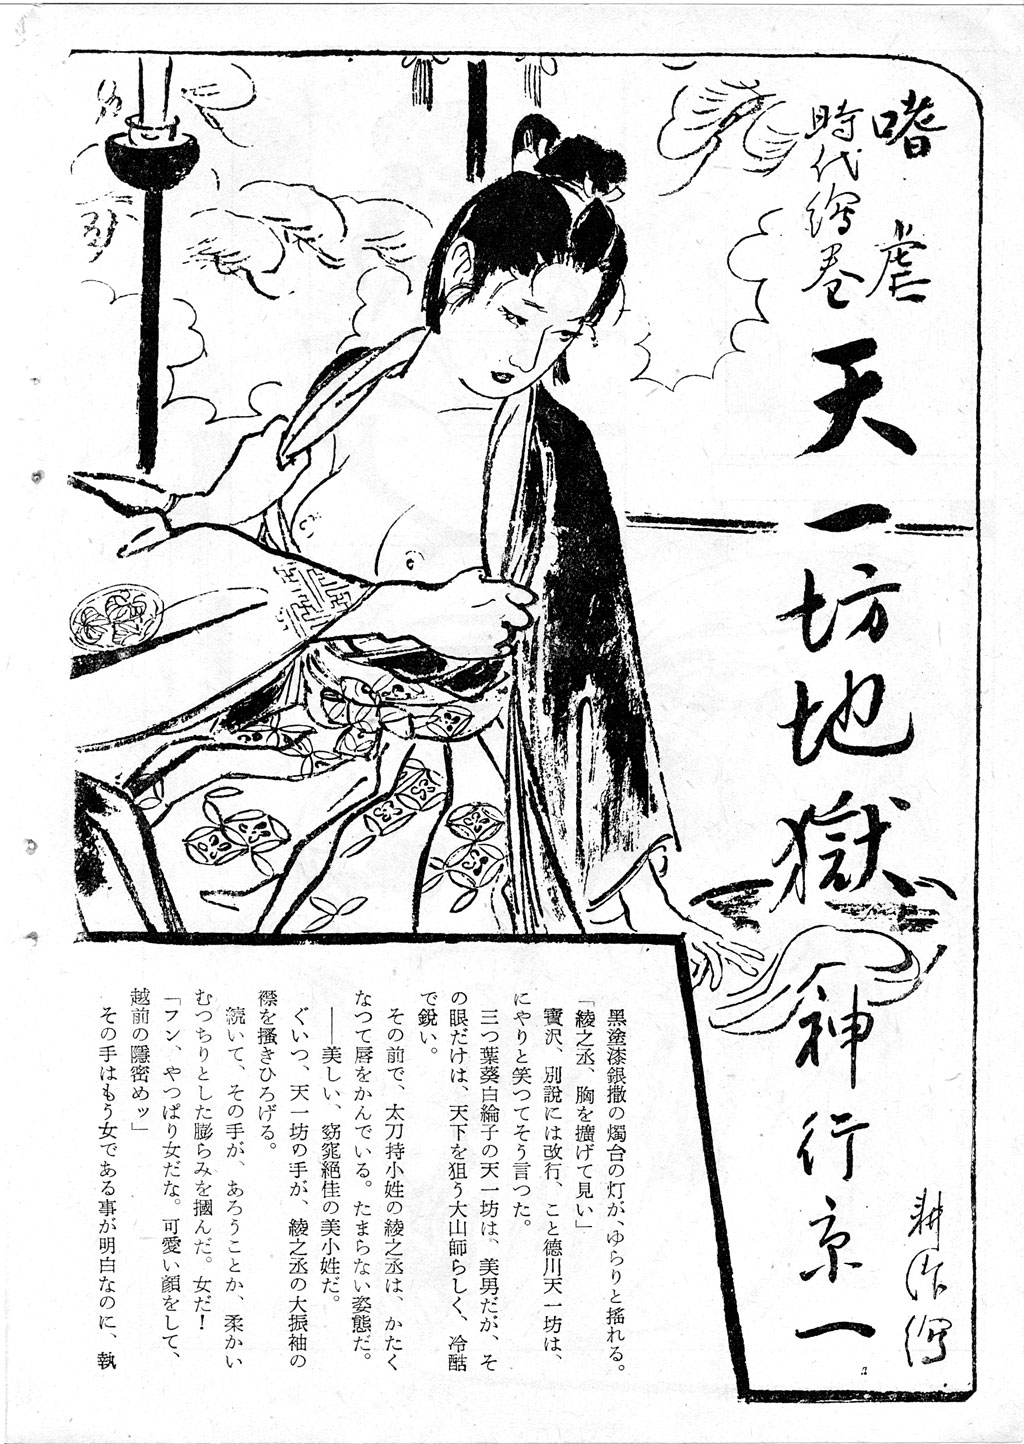 嗜虐
時代繪巻
天一坊地獄
神行京一
耕作繪
黑塗漆銀撒の燭台の灯が、ゆらりと搖れる。
「綾之丞、胸を擴げて見い」
寳沢、別説には改行、こと德川天一坊は、
にやりと笑つてそう言つた。
三つ葉葵白綸子の天一坊は、美男だが、そ
の眼だけは、天下を狙う大山師らしく、冷酷
で鋭い。
その前で、太刀持小姓の綾之丞は、かたく
なつて唇をかんでいる。たまらない姿態だ。
――美しい、窈窕絶佳の美小姓だ。
ぐいつ、天一坊の手が、綾之丞の大振袖の
襟を搔きひろげる。
続いて、その手が、あろうことか、柔かい
むつちりとした膨らみを摑んだ。女だ！
「フン、やつぱり女だな。可愛い顔をして、
越前の隱密めッ」
その手はもう女である事が明白なのに、執